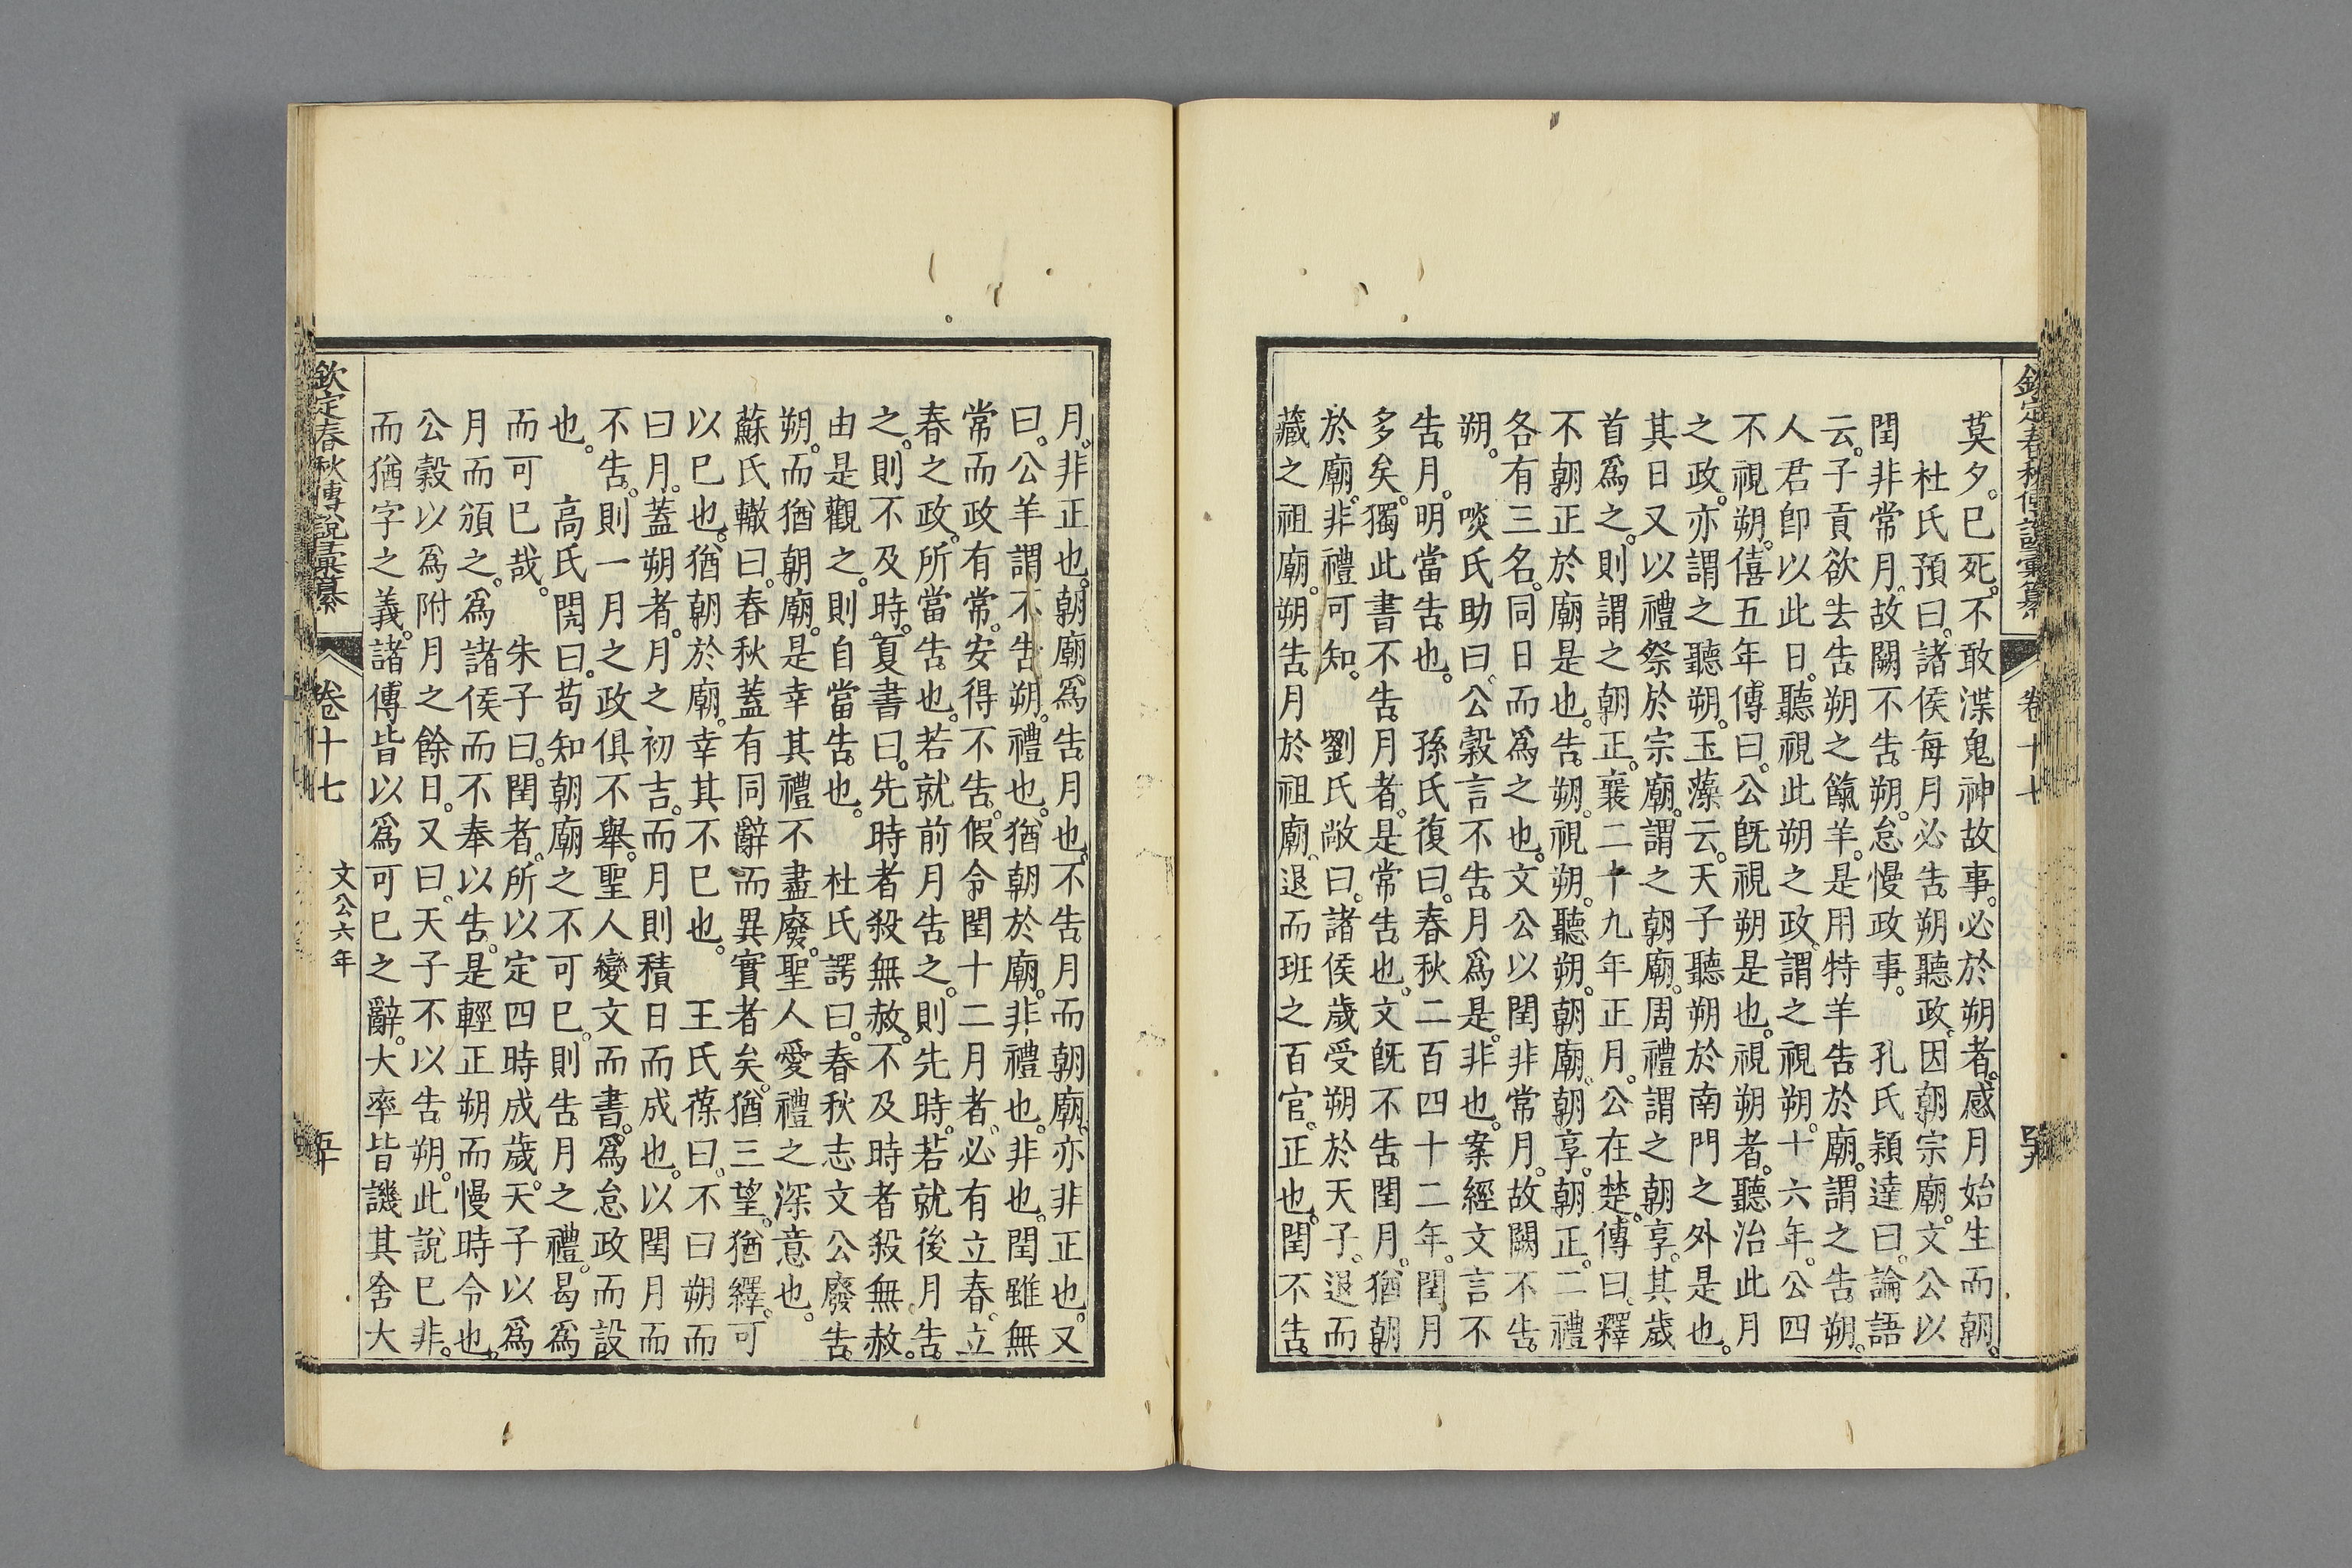 欽定春秋傳說彙纂 卷十七
莫夕。巳死。不敢渫鬼神故事。必於朔者。感月始生而朝。
杜氏預曰。諸侯每月必告朔聽政。因朝宗廟。文公以
閏非常月。故闕不告朔。怠慢政事。 孔氏穎達曰。論語
云。子貢欲去告朔之餼羊。是用特羊告於廟。謂之告朔。
人君卽以此日。聽視此朔之政。謂之視朔。十六年。公四
不視朔。僖五年傳曰。公旣視朔是也。視朔者。聽治此月
之政。亦謂之聽朔。玉藻云。天子聽朔於南門之外是也。
其日又以禮祭於宗廟。謂之朝廟。周禮謂之朝享。其歲
首爲之。則謂之朝正。襄二十九年正月。公在楚。傳曰。釋
不朝正於廟是也。告朔。視朔。聽朔。朝廟。朝享。朝正。二禮
各有三名。同日而爲之也。文公以閏非常月。故闕不告
朔。 啖氏助曰。公穀言不告月爲是。非也。案經文言不
告月。明當告也。 孫氏復曰。春秋二百四十二年。閏月
多矣。獨此書不告月者。是常告也。文旣不告閏月。猶朝
於廟。非禮可知。 劉氏敞曰。諸侯歲受朔於天子。退而
藏之祖廟。朔告月於祖廟。退而班之百官。正也。閏不告
月。非正也。朝廟爲告月也。不告月而朝廟。亦非正也。又
曰。公羊謂不告朔。禮也。猶朝於廟。非禮也。非也。閏雖無
常而政有常。安得不告。假令閏十二月者。必有立春。立
春之政。所當告也。若就前月告之。則先時。若就後月告
之。則不及時。夏書曰。先時者殺無赦。不及時者殺無赦。
由是觀之。則自當告也。 杜氏諤曰。春秋志文公廢告
朔。而猶朝廟。是幸其禮不盡廢。聖人愛禮之深意也。
蘇氏轍曰。春秋蓋有同辭而異實者矣。猶三望。猶繹。可
以巳也。猶朝於廟。幸其不巳也。 王氏葆曰。不曰朔而
曰月。蓋朔者。月之初吉。而月則積日而成也。以閏月而
不告。則一月之政俱不舉。聖人變文而書。爲怠政而設
也。 高氏閌曰。苟知朝廟之不可巳。則告月之禮。曷爲
而可巳哉。 朱子曰。閏者。所以定四時成歲。天子以爲
月而頒之。爲諸侯而不奉以告。是輕正朔而慢時令也。
公穀以爲附月之餘日。又曰。天子不以告朔。此說巳非。
而猶字之義。諸傳皆以爲可巳之辭。大率皆譏其舍大
欽定春秋傳說彙纂 卷十七 文公六年 五十